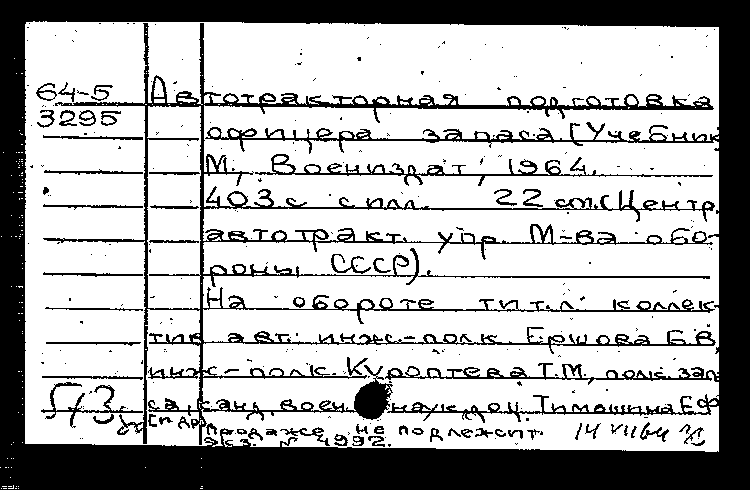 64-5
3295
Автотракторная подготовка
офицера запаса. [Учебник
М., Воениздат, 1964.
403 с с илл. 22 см. (Центр.
автотракт. упр. М-ва обо-
роны СССР).
На обороте тит. л: коллек-
тив авт: инж-полк Ершова Б.В,
инж-полк. Куроптева Т.М, полк. запа
са, канд. воен наук, доц. Тимашина Е.Ф
[и др.
продаже не подлежит.
экз. № 4992.
14 VII 64